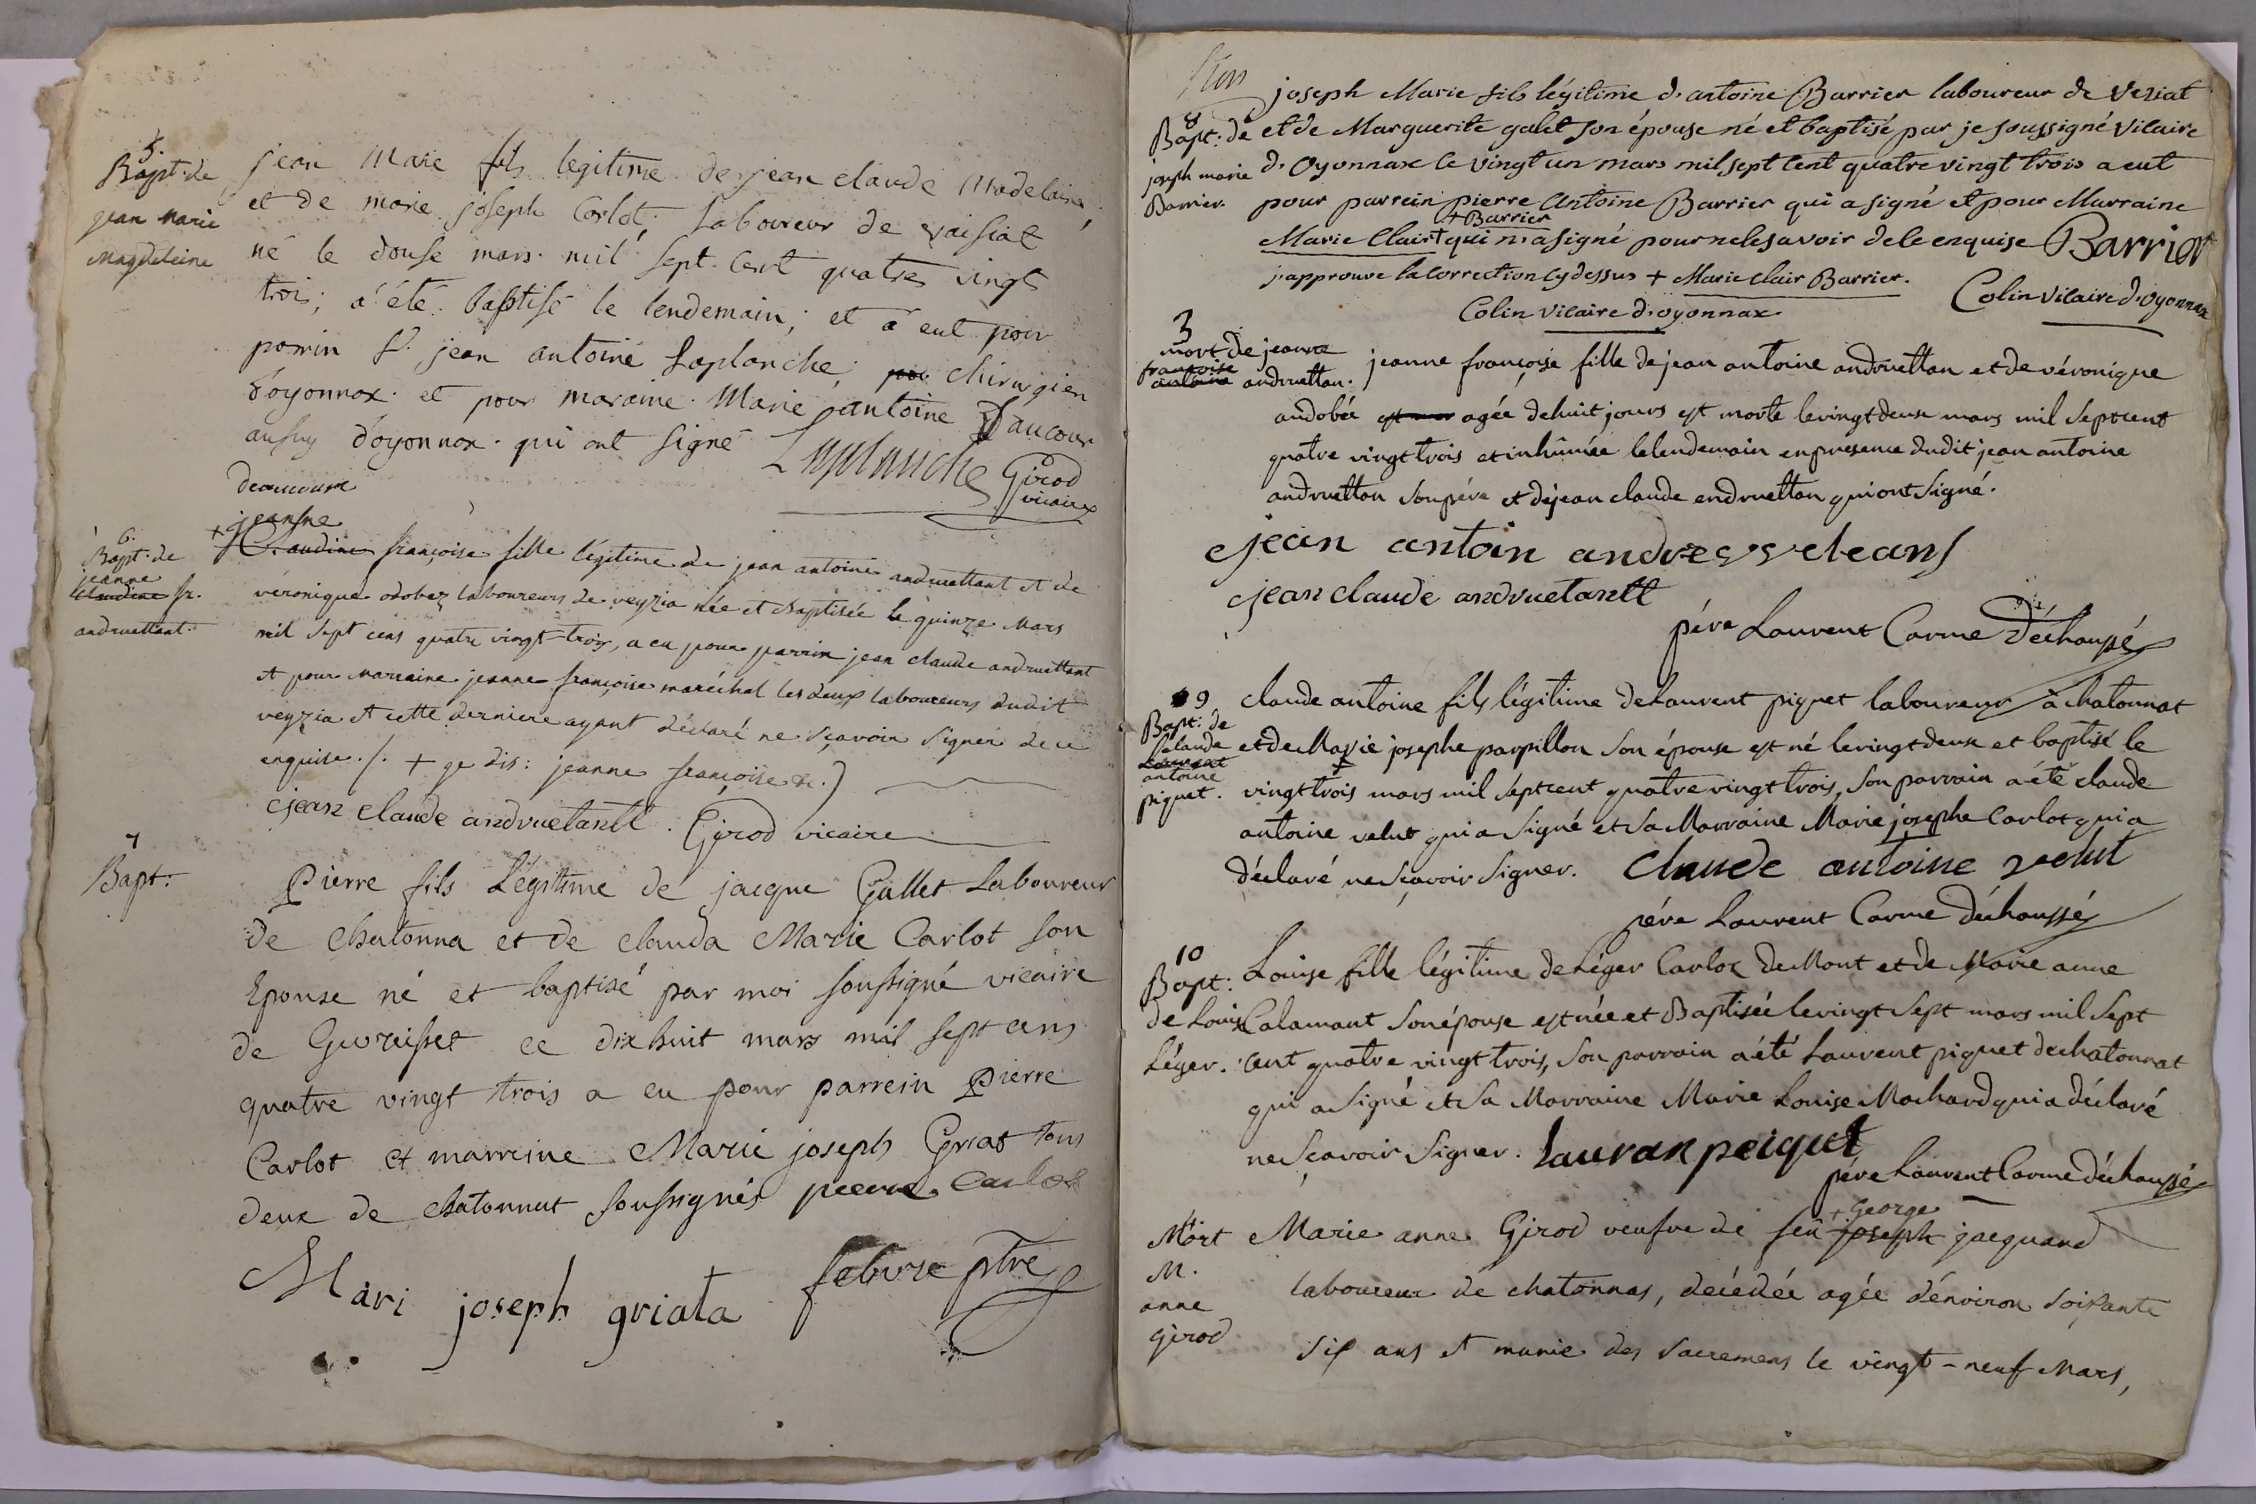 5.
Bapt. de
jean marie
Magdeleine
jean Marie fils legitime de jean claude Madelaine,
et de marie joseph Corlot, laboureur de vaisiat
né le douse mars mil sept cent quatre vingt
trois; a été baptisé le lendemain; et a eut pour
parrin Sr. jean antoine Laplanche, chirurgien
d'oyonnax et pour maraine Marie antoine Daucour
aussy d'oyonnax qui ont signé Laplanche Girod
vicaire
deaucourt
6.
Bapt. de
jeanne
claudine fr.
andruettant.
+ jeanne
Claudine françoise fille légitime de jean antoine andruettant et de
véronique odobez laboureurs de veyzia née et baptisée le quinze Mars
mil sept cens quatre vingt trois, a eu pour parrin jean claude andruettant
et pour marraine jeanne françoise maréchal les deux laboureurs dudit
veyzia et cette derniere ayant déclaré ne sçavoir signer de ce
enquise ./. + ge dis: jeanne françoise &c.)
jean claude andruetantt. Girod vicaire
7
Bapt:
Pierre fils Légitime de jacque Gallet Laboureur
de chatonna et de clauda Marie Carlot son
Epouse né et baptisé par moi soussigné vicaire
de Guoreisset ce dix huit mars mil sept cens
quatre vingt trois a eu pour parrein Pierre
Carlot et marreine Marie joseph Griat tous
deux de chatonnat soussignés pierre Carlot
Mari joseph griata febvre ptre
8
Bapt: de
joseph marie
Barrier.
joseph Marie fils légitime d'antoine Barrier laboureur de Veziat
et de Marguerite galet son épouse né et baptisé par je soussigné Vicaire
d'Oyonnax le vingt un mars mil sept cent quatre vingt trois a eut
pour parrein pierre Antoine Barrier qui a signé et pour Marraine
+ Barrier
Marie Clair + qui n'a signé pour ne le savoir de le enquise Barrier
j'approuve la correction cy dessus + Marie Clair Barrier.
Colin Vicaire d'oyonnax
Colin Vicaire d'oyonnax
3
mort de jeanne
françoise
antoine andruettan.
jeanne françoise fille de jean antoine andruettan et de véronique
audobée est mor agée de huit jours est morte le vingt deux mars mil sept cent
quatre vingt trois et inhûmée le lendemain en présence dudit jean antoine
andruettan son pére et de jean claude endruettan qui ont signé.
jean antoin andre
jean claude andruetantt
pére Laurent Carme Déchaussé
9
Bapt: de
claude
Laurent
antoine
piquet.
claude antoine fils légitime de Laurent piquet laboureur à chatonnat
et de Marie josephe parpillon son épouse est né le vingt deux et baptisé le
vingt trois mars mil sépt cent quatre vingt trois, son parrain a été claude
antoine velut qui a signé et sa Marraine Marie josephe Carlot qui a
déclaré ne sçavoir signer. Claude antoine velut
pére Laurent Carme déchaussé
10
Bapt:
de Louise
Léger.
Louise fille légitime de Léger Carlot de Mont et de Marie anne
Calamant son épouse est née et Baptisée le vingt sept mars mil sept
cent quatre vingt trois, son parrain a été Laurent piquet de chatonnat
qui a signé et sa Marraine Marie Louise Mochard qui a déclaré
ne sçavoir signer. Lauran peiqut
pére Laurent Carme déchaussé
4
Mort
M.
anne
Girod
+ George
Marie anne Girod veufve de feû joseph jacquand
laboureur de chatonnas, decédée agée d'énviron soixante
six ans et munie des sacremens le vingt-neuf Mars,